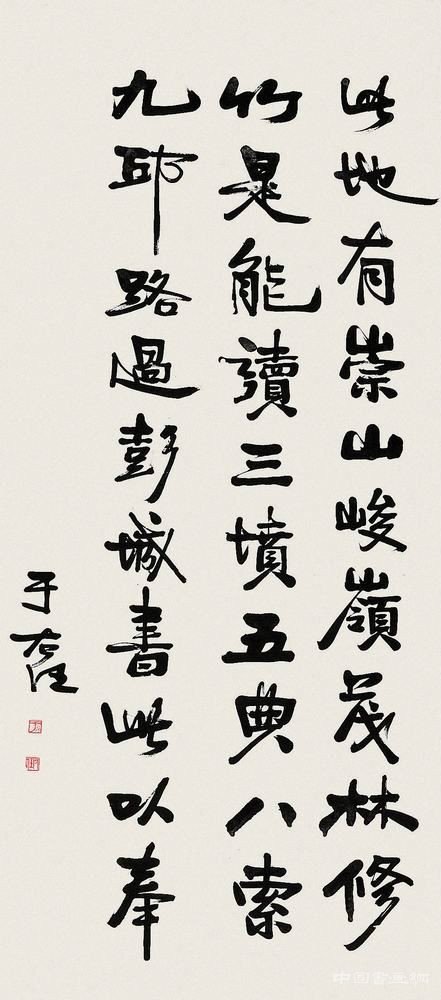 此地有崇山峻嶺茂林修
竹是能讀三墳五典八索
九邱路過彭城書此以奉
于右任
中国書画網